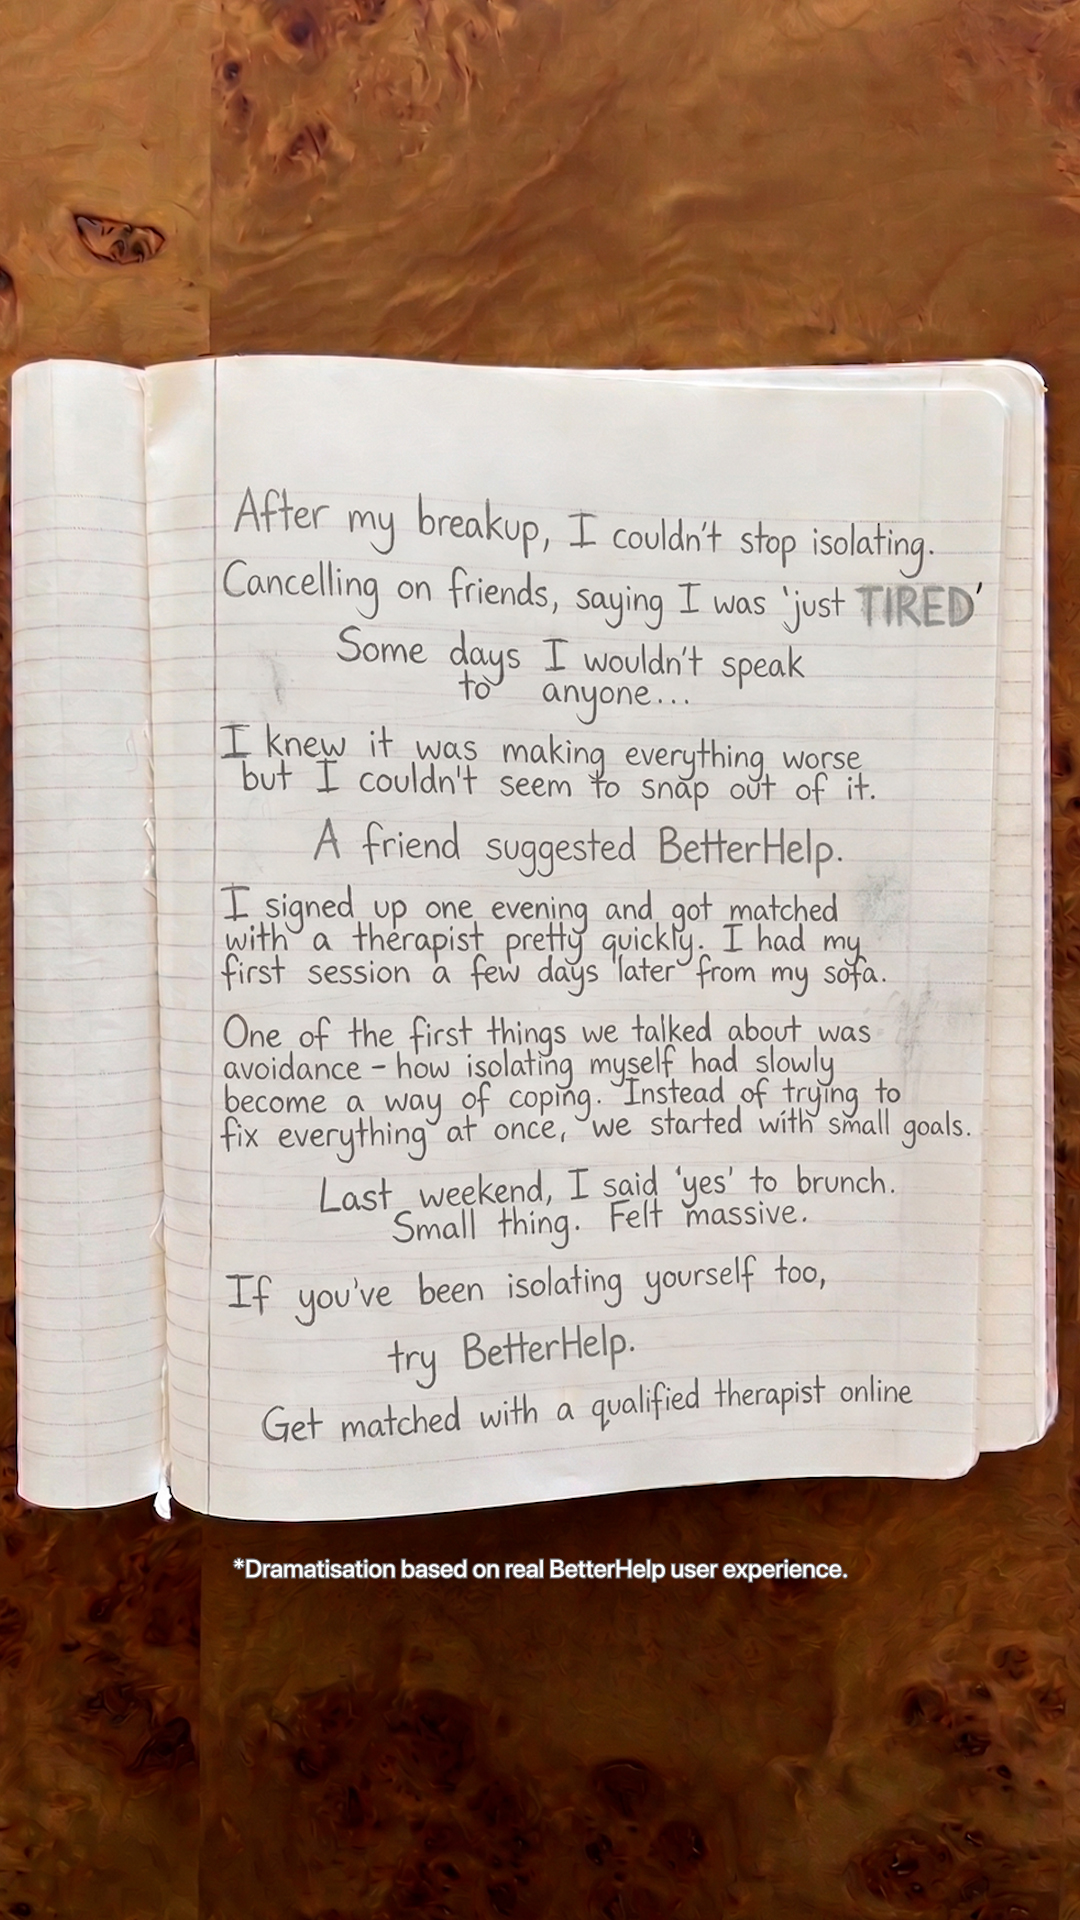 After my breakup, I couldn't stop isolating.
Cancelling on friends, saying I was 'just TIRED'
Some days I wouldn't speak
to anyone...
I knew it was making everything worse
but I couldn't seem to snap out of it.
A friend suggested BetterHelp.
I signed up one evening and got matched
with a therapist pretty quickly. I had my
first session a few days later from my sofa.
One of the first things we talked about was
avoidance - how isolating myself had slowly
become a way of coping. Instead of trying to
fix everything at once, we started with small goals.
Last weekend, I said 'yes' to brunch.
Small thing. Felt massive.
If you've been isolating yourself too,
try BetterHelp.
Get matched with a qualified therapist online
*Dramatisation based on real BetterHelp user experience.